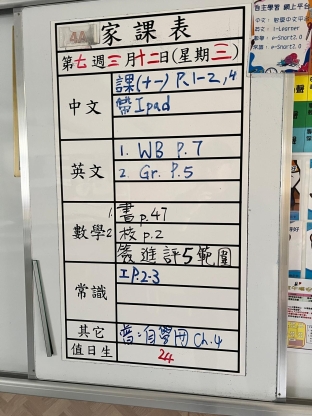 4A
家課表
第七週三月十二日(星期三)
中文
課(十一) P.1-2,4
帶Ipad
英文
1. WB P.7
2. Gr. P.5
數學
1. 書 p.47
2 校 p.2
簽進評5範圍
常識
IP.2-3
其它
普:自學冊 Ch.4
值日生
24
自主學習 網上平台